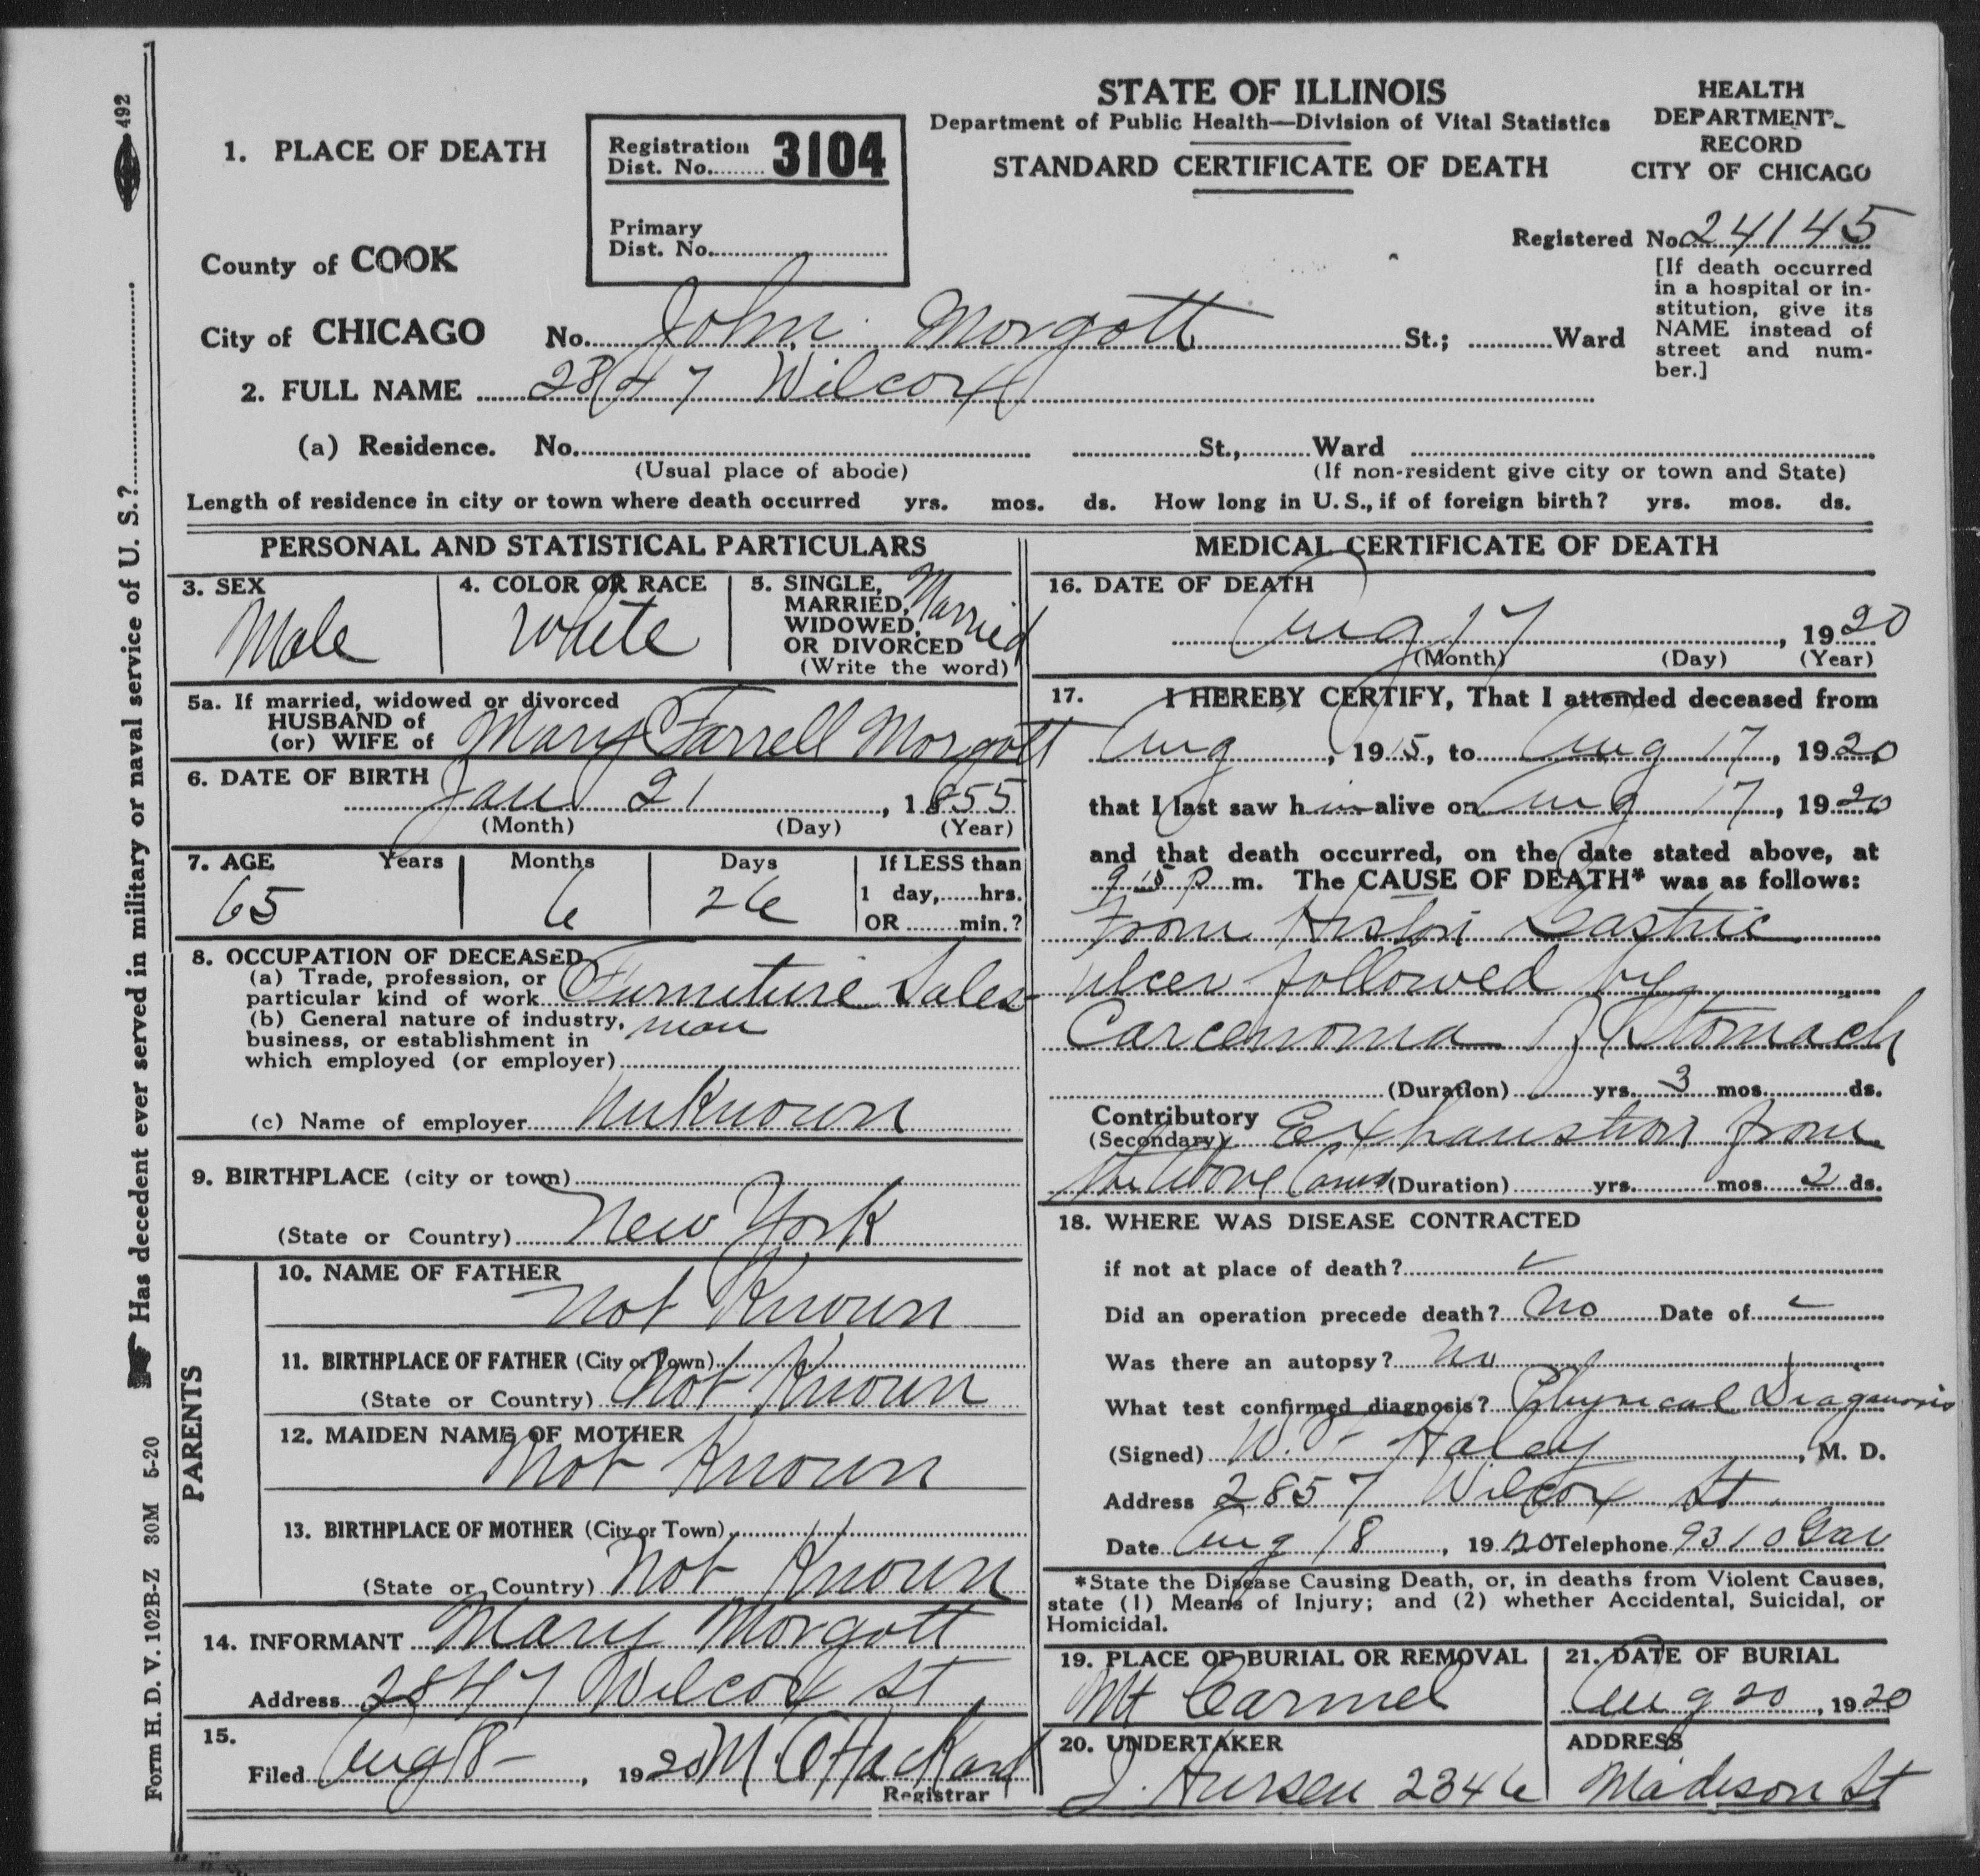 STATE OF ILLINOIS
Department of Public Health—Division of Vital Statistics
STANDARD CERTIFICATE OF DEATH
HEALTH
DEPARTMENT
RECORD
CITY OF CHICAGO
1. PLACE OF DEATH
Registration
Dist. No. 3104
Primary
Dist. No.
Registered No. 24145
[If death occurred
in a hospital or in-
stitution, give its
NAME instead of
street and num-
ber.]
County of COOK
City of CHICAGO No. John Morgott St.; Ward
2. FULL NAME 2847 Wilcox
(a) Residence. No. St., Ward
(Usual place of abode) (If non-resident give city or town and State)
Length of residence in city or town where death occurred yrs. mos. ds. How long in U.S., if of foreign birth? yrs. mos. ds.
PERSONAL AND STATISTICAL PARTICULARS
3. SEX
Male
4. COLOR OR RACE
White
5. SINGLE,
MARRIED,
WIDOWED,
OR DIVORCED
(Write the word)
Married
5a. If married, widowed or divorced
HUSBAND of
(or) WIFE of Mary Farrell Morgott
6. DATE OF BIRTH
Jan 21, 1855
(Month) (Day) (Year)
7. AGE Years Months Days If LESS than
65 6 26 1 day, hrs.
OR min.?
8. OCCUPATION OF DECEASED
(a) Trade, profession, or
particular kind of work Furniture Sales-
(b) General nature of industry, man
business, or establishment in
which employed (or employer)
(c) Name of employer unknown
9. BIRTHPLACE (city or town)
(State or Country) New York
PARENTS
10. NAME OF FATHER
Not Known
11. BIRTHPLACE OF FATHER (City or Town)
(State or Country) Not Known
12. MAIDEN NAME OF MOTHER
Not Known
13. BIRTHPLACE OF MOTHER (City or Town)
(State or Country) Not Known
14. INFORMANT Mary Morgott
Address 2847 Wilcox St.
15.
Filed Aug 18-, 1920 M.O. Hackard
Registrar
MEDICAL CERTIFICATE OF DEATH
16. DATE OF DEATH
Aug 17, 1920
(Month) (Day) (Year)
17. I HEREBY CERTIFY, That I attended deceased from
Aug, 1915, to Aug 17, 1920
that I last saw him alive on Aug 17, 1920
and that death occurred, on the date stated above, at
9 15 P m. The CAUSE OF DEATH* was as follows:
From Gastric
ulcer followed by
Carcenoma of Stomach
(Duration) yrs. 3 mos. ds.
Contributory Exhaustion from
(Secondary)
the above Cause (Duration) yrs. mos. 2 ds.
18. WHERE WAS DISEASE CONTRACTED
if not at place of death?
Did an operation precede death? No Date of
Was there an autopsy? No
What test confirmed diagnosis? Physical Diagnosis
(Signed) W. F. Haley, M. D.
Address 2857 Wilcox St.
Date Aug 18, 1920 Telephone 9310 Gar
*State the Disease Causing Death, or, in deaths from Violent Causes,
state (1) Means of Injury; and (2) whether Accidental, Suicidal, or
Homicidal.
19. PLACE OF BURIAL OR REMOVAL
Mt Carmel
21. DATE OF BURIAL
Aug 20, 1920
20. UNDERTAKER
J. Hursen 2346
ADDRESS
Madison St
492
Has decedent ever served in military or naval service of U. S.?
Form H. D. V. 102B-Z 30M 5-20